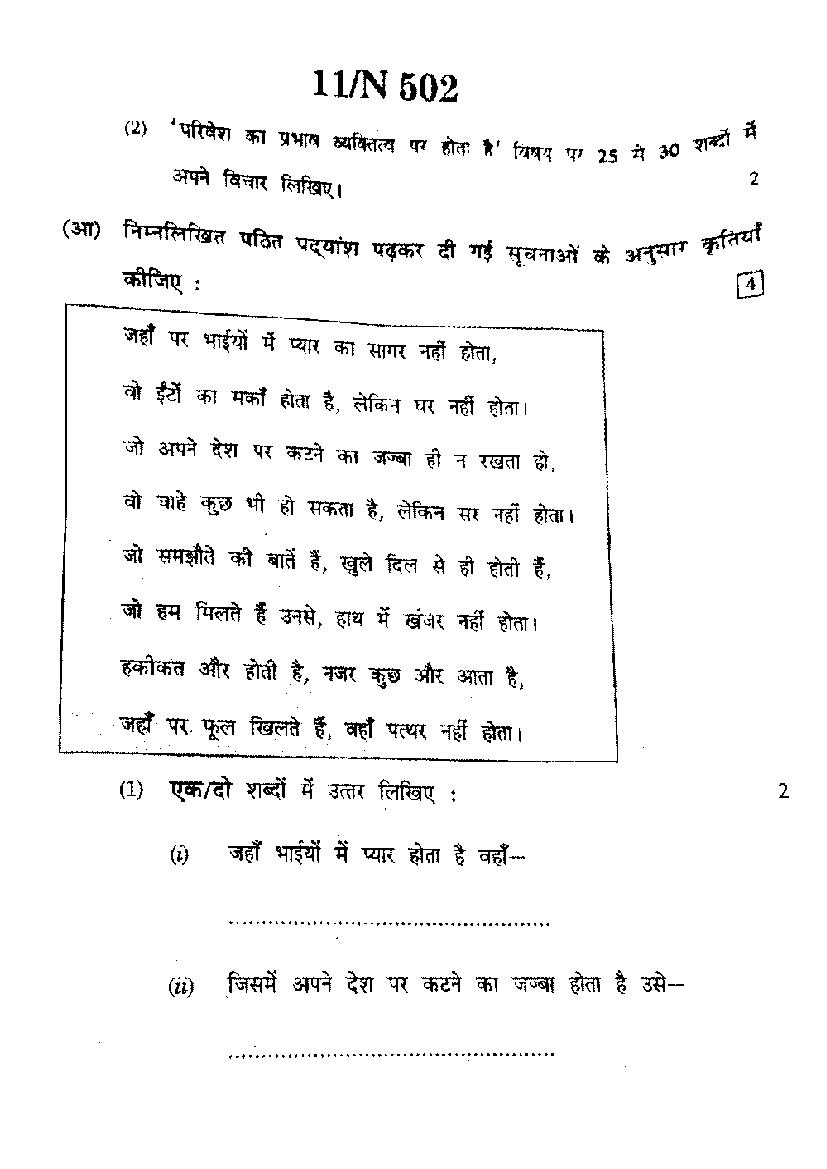 11/N 502
(2) 'परिवेश का प्रभाव व्यक्तित्व पर होता है' विषय पर 25 से 30 शब्दों में
अपने विचार लिखिए। 2
(आ) निम्नलिखित पठित पद्यांश पढ़कर दी गई सूचनाओं के अनुसार कृतियाँ
कीजिए : 4
जहाँ पर भाईयों में प्यार का सागर नहीं होता,
वो ईंटों का मकाँ होता है, लेकिन घर नहीं होता।
जो अपने देश पर कटने का जज्बा ही न रखता हो,
वो चाहे कुछ भी हो सकता है, लेकिन सर नहीं होता।
जो समझौते की बातें हैं, खुले दिल से ही होती हैं,
जो हम मिलते हैं उनसे, हाथ में खंजर नहीं होता।
हकीकत और होती है, नजर कुछ और आता है,
जहाँ पर फूल खिलते हैं, वहाँ पत्थर नहीं होता।
(1) एक/दो शब्दों में उत्तर लिखिए : 2
(i) जहाँ भाईयों में प्यार होता है वहाँ—
..................................................
(ii) जिसमें अपने देश पर कटने का जज्बा होता है उसे—
..................................................